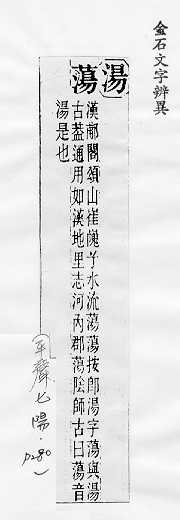 金石文字辨異
湯
蕩
漢郙閣頌山崔嵬兮水流蕩蕩按卽湯字蕩與湯
古蓋通用如漢地里志河內郡蕩陰師古曰蕩音
湯是也
(平聲七陽.p280)